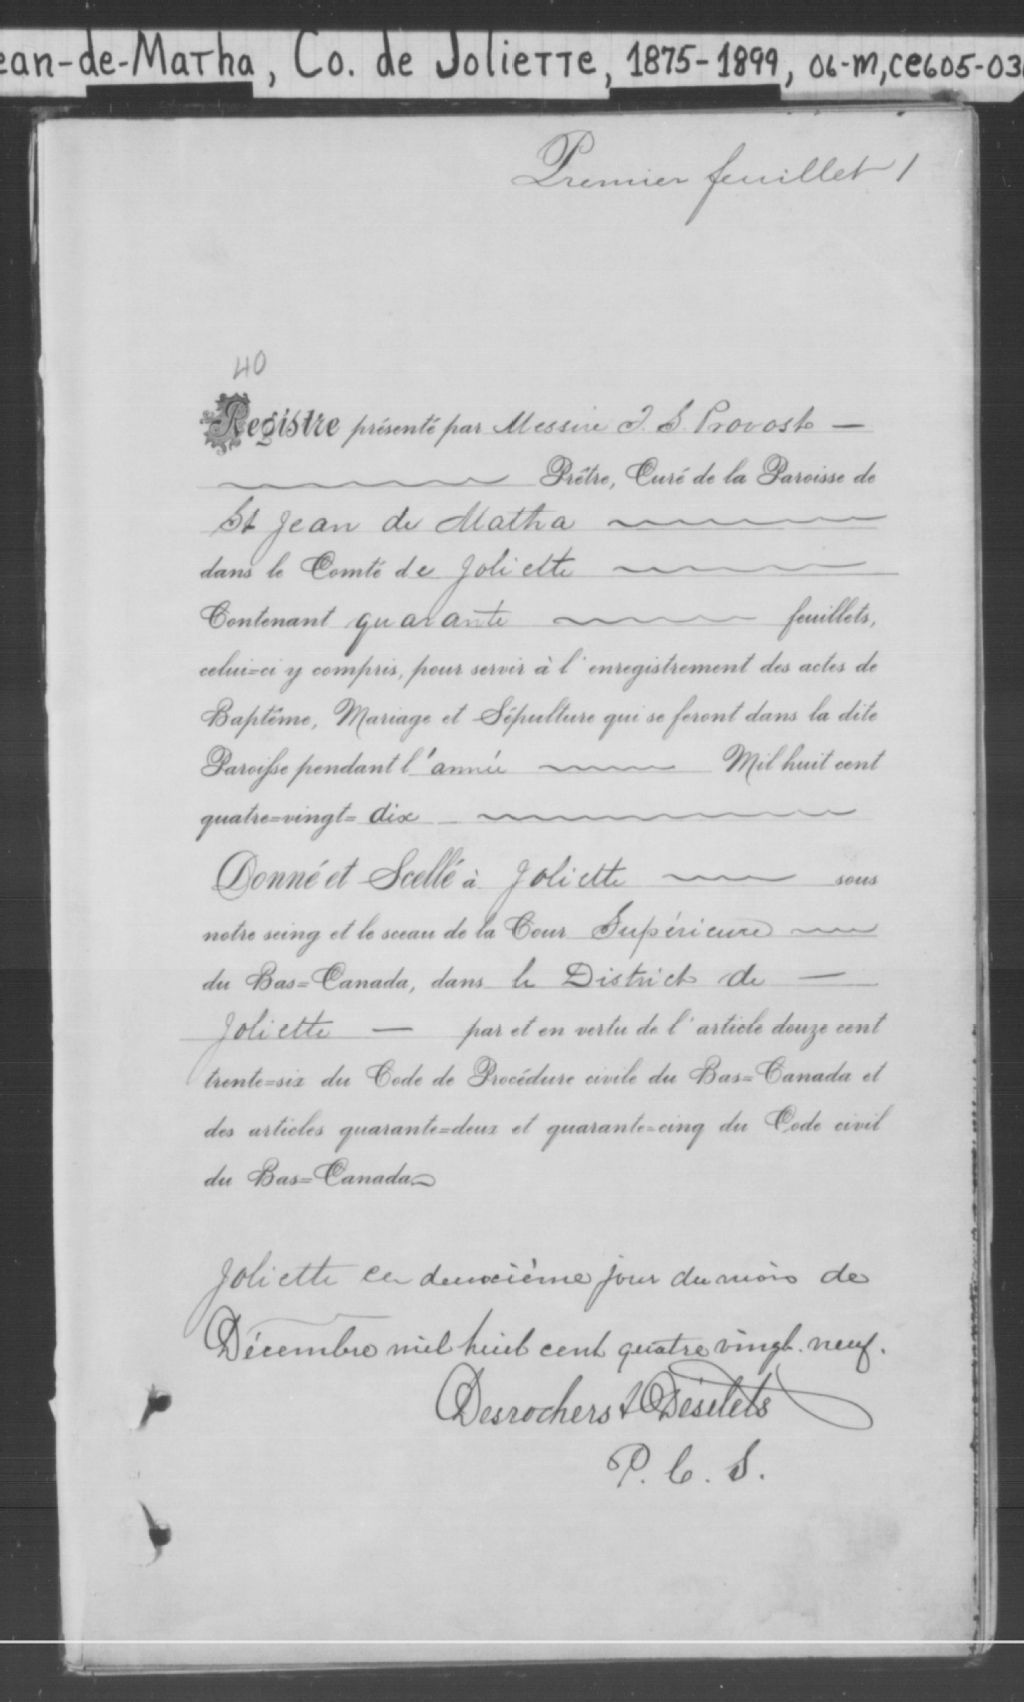 ean-de-Matha, Co. de Joliette, 1875-1899, 06-M, CE605-03
Premier feuillet 1
40
Registre présenté par Messire T. S. Provost —
Prêtre, Curé de la Paroisse de
St Jean de Matha
dans le Comté de Joliette
Contenant quarante feuillets,
celui=ci y compris, pour servir à l'enregistrement des actes de
Baptême, Mariage et Sépulture qui se feront dans la dite
Paroisse pendant l'année Mil huit cent
quatre=vingt= dix
Donné et Scellé à Joliette sous
notre seing et le sceau de la Cour Supérieure
du Bas=Canada, dans le District de —
Joliette — par et en vertu de l'article douze cent
trente=six du Code de Procédure civile du Bas=Canada et
des articles quarante=deux et quarante=cinq du Code civil
du Bas=Canada
Joliette ce deuxième jour du mois de
Décembre mil huit cent quatre vingt. neuf.
Desrochers & Désilets
P. C. S.